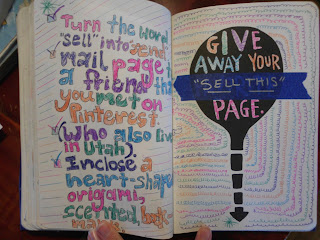 Turn the word
"sell" into send
mail page to
a friend that
you meet on
Pinterest.
(Who also live
in Utah).
Inclose a
heart-shape
origami,
scented, book-
GIVE
AWAY YOUR
"SELL THIS"
PAGE.